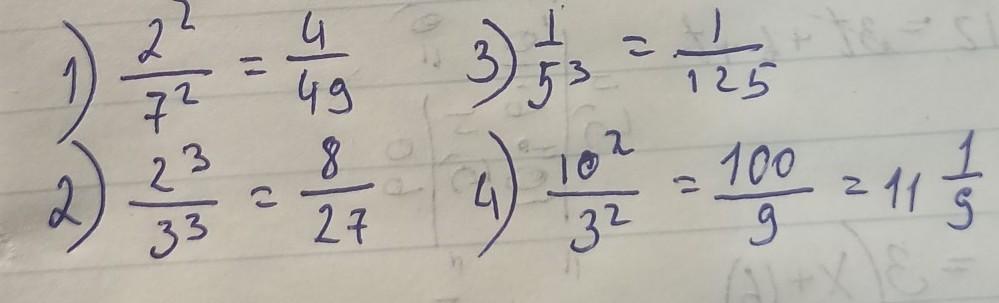 1) 2²/7² = 4/49
3) 1/5³ = 1/125
2) 2³/3³ = 8/27
4) 10²/3² = 100/9 = 11 1/9